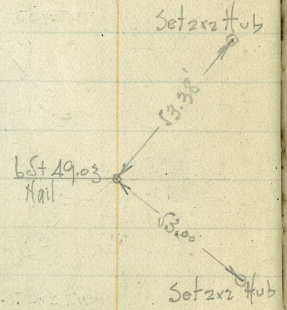 Set 2x2 Hub
53.38'
65+49.03
Nail
53.00'
Set 2x2 Hub